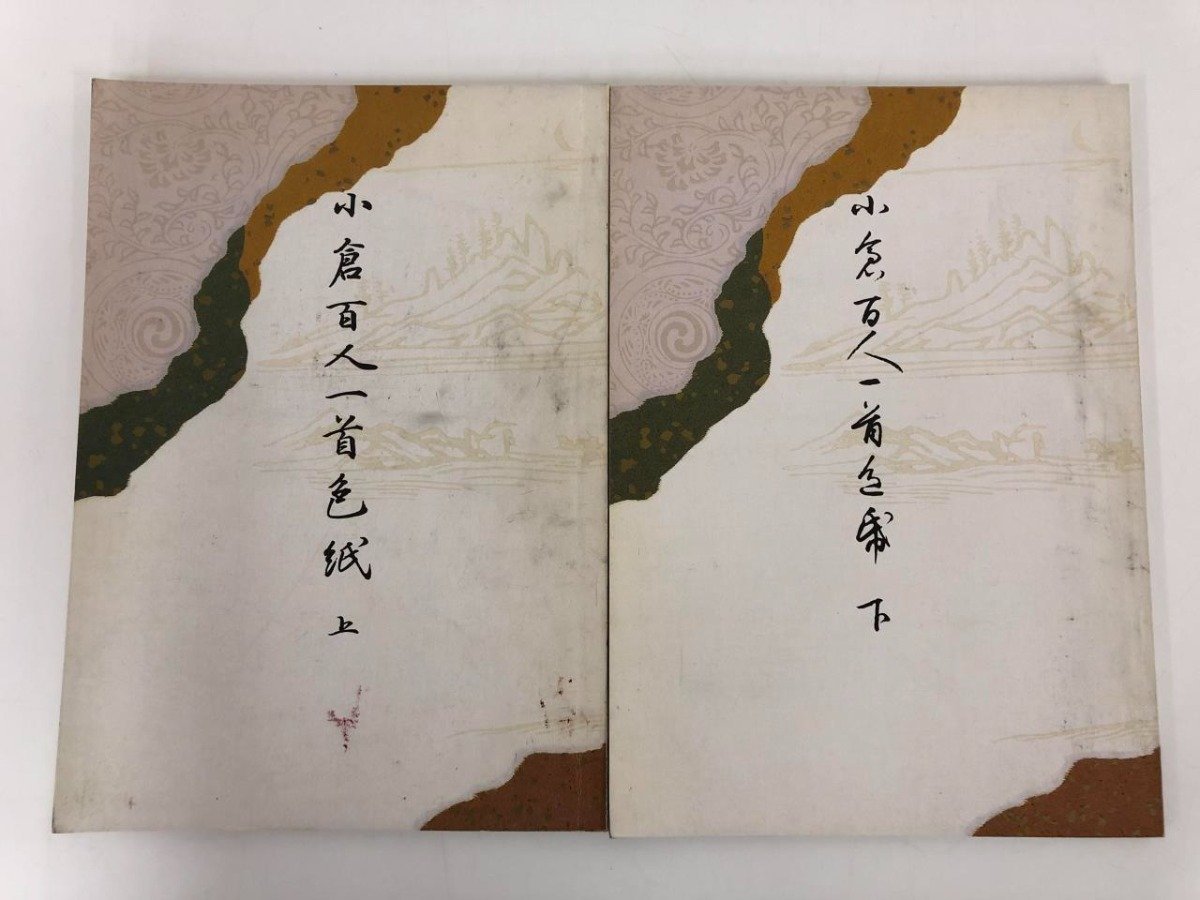 小倉百人一首色紙 上
小倉百人一首色紙 下